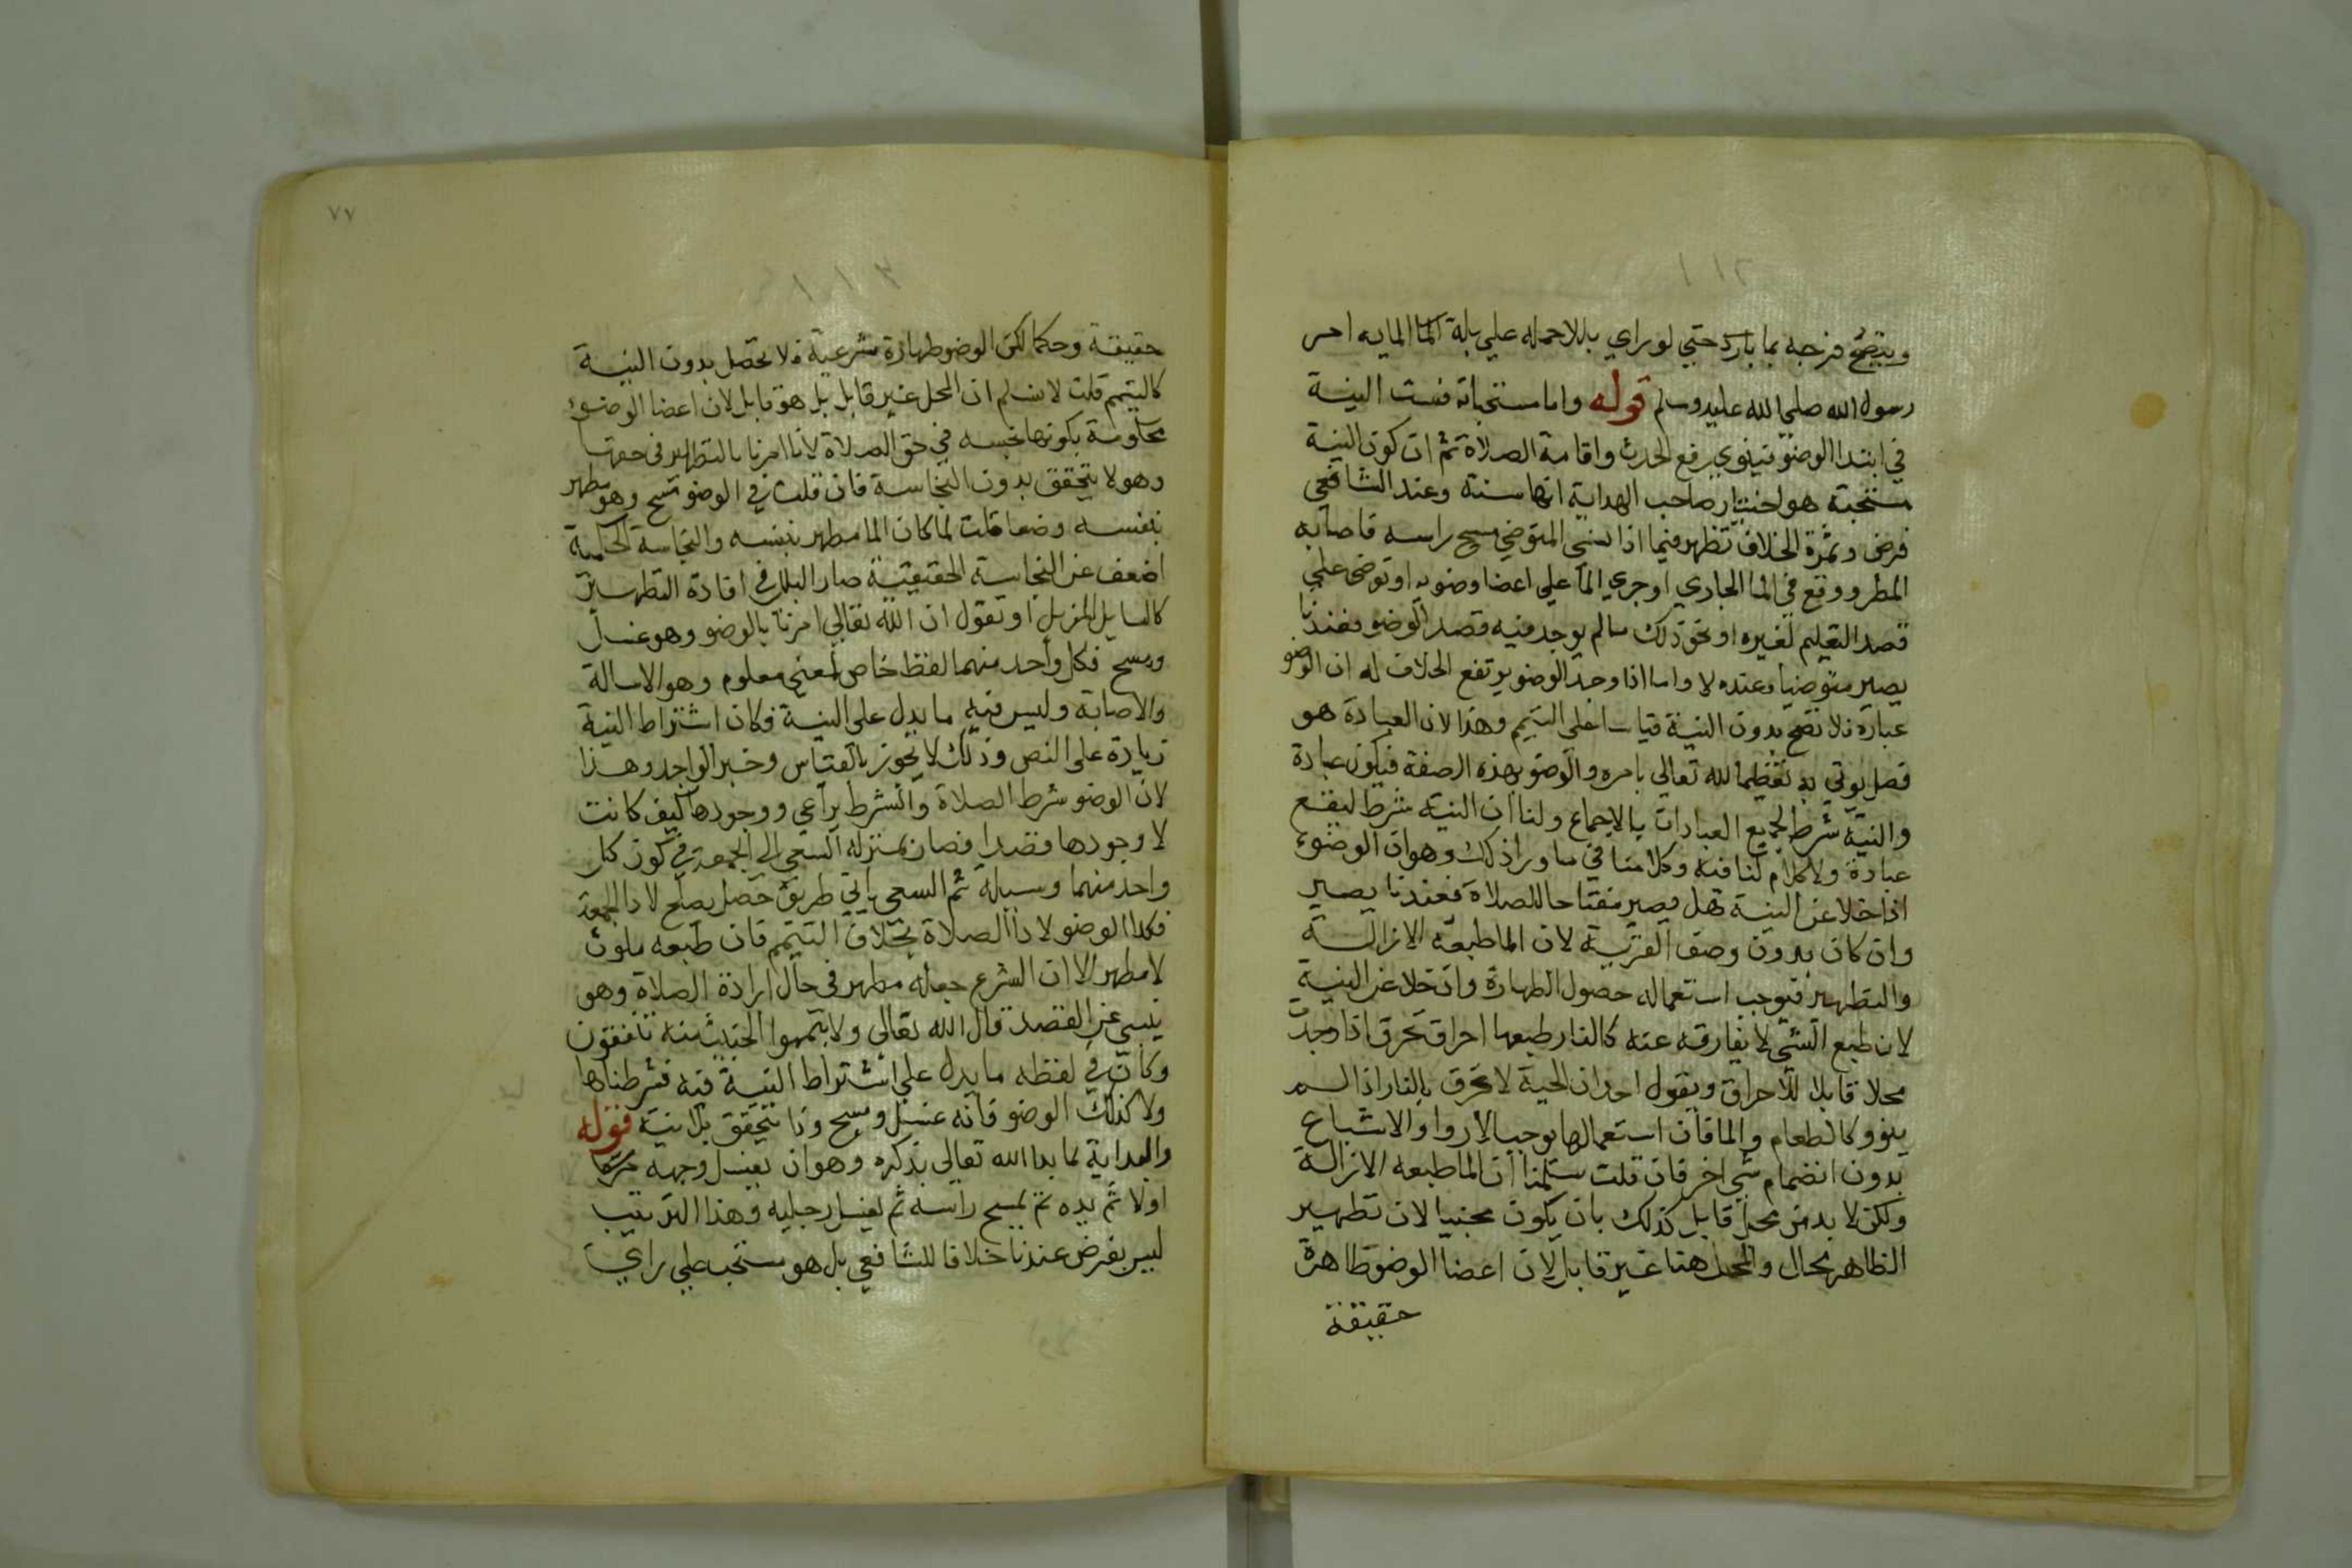 وينضح فرجه بما بارد حتي لو راي بللا حمله علي بلة الما الما به امر
رسول الله صلي الله عليه وسلم قوله واما مستحباته فست النية
في ابتدا الوضو فينوي برفع الحدث واقامة الصلاة ثم ان كون النية
مستحبة هو اختيار صاحب الهداية انها سنة وعند الشافعي
فرض وثمرة الخلاف تظهر فيما اذا نسي المتوضي مسح راسه فاصابه
المطر ووقع في الما الجاري او جري الما علي اعضا وضويه او توضي علي
قصد التعليم لغيره او نحو ذلك مما لم يوجد فيه قصد الوضو فعندنا
يصير متوضيا وعنده لا واما اذا وجد الوضو يرتفع الخلاف له ان الوضو
عبادة فلا تصح بدون النية قياسا علي التيمم وهذا لان العبادة هو
فصل يوتي به تعظيما لله تعالي بامره والوضو بهذه الصفة فيكون عبادة
والنية شرط لجميع العبادات بالاجماع ولنا ان النية شرط ليقع
عبادة ولا كلام لنا فيه وكلامنا في ما ورا ذلك وهو ان الوضوء
اذا خلا عن النية هل يصير مفتاحا للصلاة فعندنا يصير
وان كان بدون وصف القربة لان الما طبعه الازالة
والتطهير فيوجب استعماله حصول الطهارة وان خلا عن النية
لان طبع الشي لا يفارقه عنه كالنار طبعها احراق تحرق اذا وجدت
محلا قابلا للاحراق ويقول احد ان الحية لا تحرق بالنار اذا لم
ينوو كالطعام والما فان استعمالها يوجب الاروا والاشباع
بدون انضمام شي اخر فان قلت سلمنا ان الما طبعه الازالة
ولكن لا بد من محل قابل كذلك بان يكون مجنبيا لان تطهير
الطاهر محال والمحل هنا غير قابل لان اعضا الوضو طاهرة
حقيقة
٧٧
حقيقة وحكما لكن الوضو طهارة شرعية فلا تحصل بدون النية
كالتيمم قلت لا نسلم ان المحل غير قابل بل هو قابل لان اعضا الوضوء
محكومة بكونها نجسه في حق الصلاة لانا امرنا بالتطهير في حقها
وهو لا يتحقق بدون النجاسة فان قلت في الوضو مسح وهو مطهر
بنفسه وضعا قلت لما كان الما مطهر بنفسه والنجاسة الحكمية
اضعف عن النجاسة الحقيقية صار البلل في افادة التطهير
كالسايل المزيل او نقول ان الله تعالي امرنا بالوضو وهو غسل
ومسح فكل واحد منهما لفظ خاص لمعني معلوم وهو الاسالة
والاصابة وليس فيه ما يدل علي النية فكان اشتراط النية
زيادة علي النص وذلك لا يجوز بالقياس وخبر الواحد وهذا
لان الوضو شرط الصلاة والشرط يراعي ووجودها كيف كانت
لا وجودها قصدا فصار بمنزله السعي الي الجمعة في كون كل
واحد منهما وسيلة ثم السعي باي طريق حصل يصلح لادا الجمعة
فكذا الوضو لادا الصلاة بخلاف التيمم فان طبعه ملوث
لا مطهر الا ان الشرع جعله مطهر في حال ارادة الصلاة وهو
ينبي عن القصد قال الله تعالي ولا تيمموا الخبيث منه تنفقون
وكان في لفظه ما يدل علي اشتراط النية فيه فشرطناها
ولا كذلك الوضو فانه غسل ومسح وذا يتحقق بلا نية قوله
والبداية بما بدا الله تعالي بذكره وهو ان يغسل وجهه
اولا ثم يده ثم يمسح راسه ثم يغسل رجليه وهذا الترتيب
ليس بفرض عندنا خلافا للشافعي بل هو مستحب علي راي